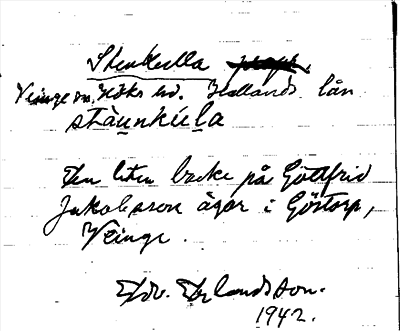 Stenkulla
Veinge sn. Höks hd. Hallands län
stàunkúla
En liten backe på Gottfrid
Jakobsson ägor i Göstorp,
Veinge.
Edv. Erlandsson.
1942.